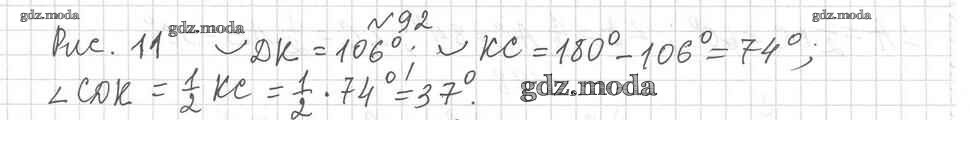 gdz.moda gdz.moda №92 gdz.moda
Рис. 11 ◡DK = 106°; ◡KC = 180° - 106° = 74°;
∠CDK = 1/2 KC = 1/2 · 74° = 37°. gdz.moda